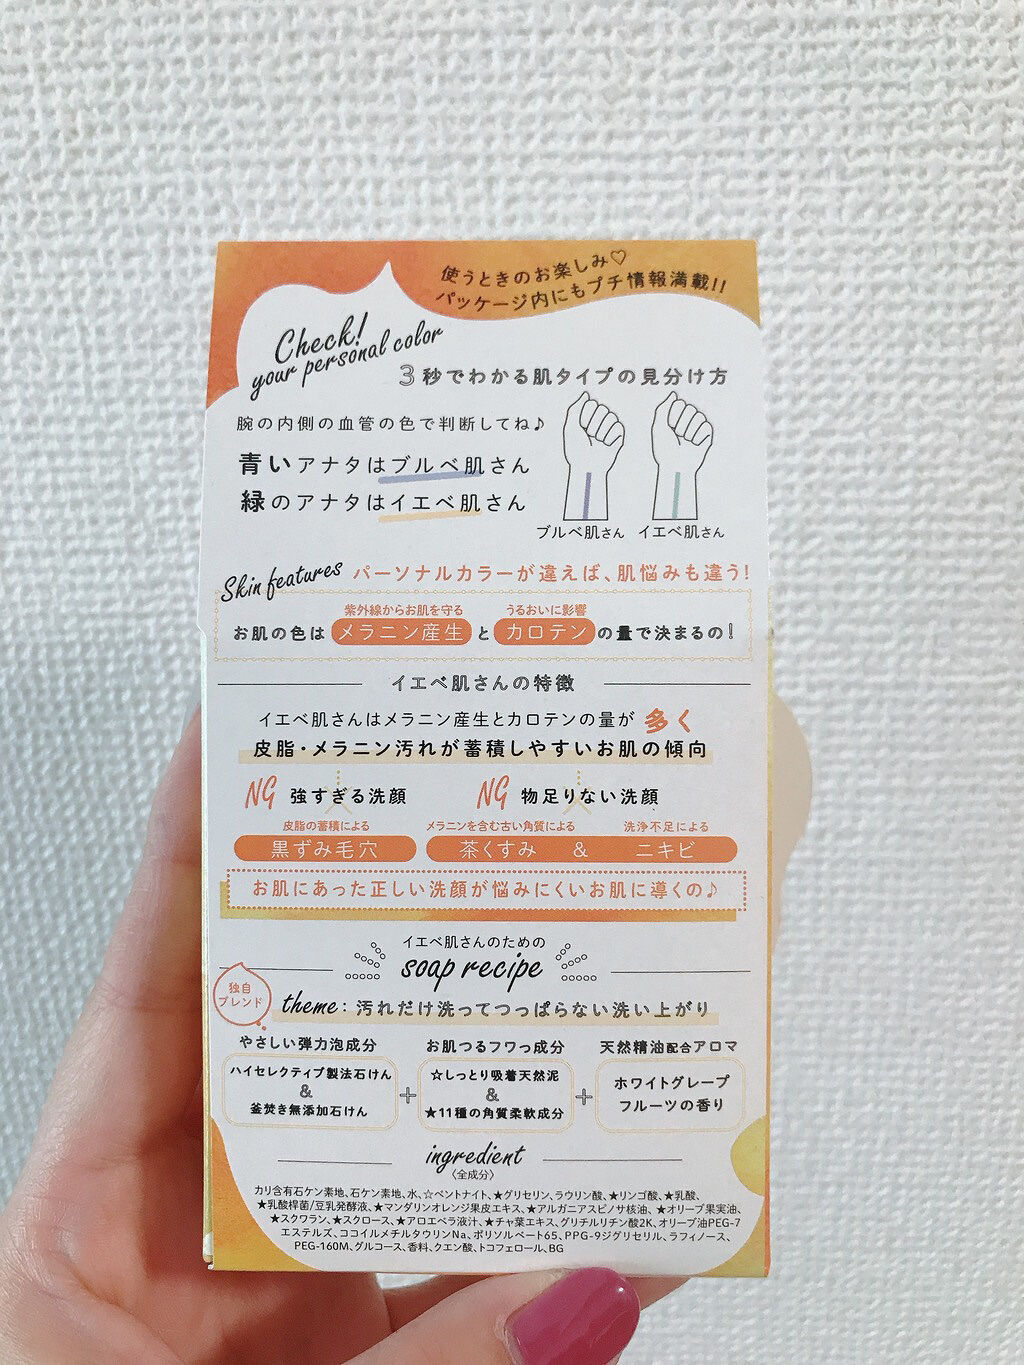 使うときのお楽しみ♡
パッケージ内にもプチ情報満載!!
Check!
your personal color
3秒でわかる肌タイプの見分け方
腕の内側の血管の色で判断してね♪
青いアナタはブルベ肌さん
緑のアナタはイエベ肌さん
ブルベ肌さん イエベ肌さん
Skin features パーソナルカラーが違えば、肌悩みも違う!
紫外線からお肌を守る うるおいに影響
お肌の色は メラニン産生 と カロテン の量で決まるの!
イエベ肌さんの特徴
イエベ肌さんはメラニン産生とカロテンの量が 多く
皮脂・メラニン汚れが蓄積しやすいお肌の傾向
NG 強すぎる洗顔 NG 物足りない洗顔
皮脂の蓄積による メラニンを含む古い角質による 洗浄不足による
黒ずみ毛穴 茶くすみ & ニキビ
お肌にあった正しい洗顔が悩みにくいお肌に導くの♪
イエベ肌さんのための
soap recipe
独自
ブレンド
theme: 汚れだけ洗ってつっぱらない洗い上がり
やさしい弾力泡成分 お肌つるフワっ成分 天然精油配合アロマ
ハイセレクティブ製法石けん
&
釜焚き無添加石けん
+
☆しっとり吸着天然泥
&
★11種の角質柔軟成分
+
ホワイトグレープ
フルーツの香り
ingredient
〈全成分〉
カリ含有石ケン素地、石ケン素地、水、☆ベントナイト、★グリセリン、ラウリン酸、★リンゴ酸、★乳酸、
★乳酸桿菌/豆乳発酵液、★マンダリンオレンジ果皮エキス、★アルガニアスピノサ核油、★オリーブ果実油、
★スクワラン、★スクロース、★アロエベラ液汁、★チャ葉エキス、グリチルリチン酸2K、オリーブ油PEG-7
エステルズ、ココイルメチルタウリンNa、ポリソルベート65、PPG-9ジグリセリル、ラフィノース、
PEG-160M、グルコース、香料、クエン酸、トコフェロール、BG